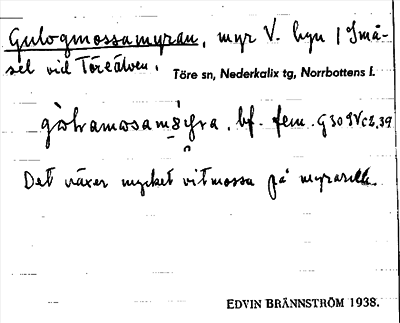 Gulogmossamyran, myr V. byn / Små-
sel vid Töreälven.
Töre sn, Nederkalix tg, Norrbottens l.
bf. fem.
Det växer mycket vitmossa på
EDVIN BRÄNNSTRÖM 1938.